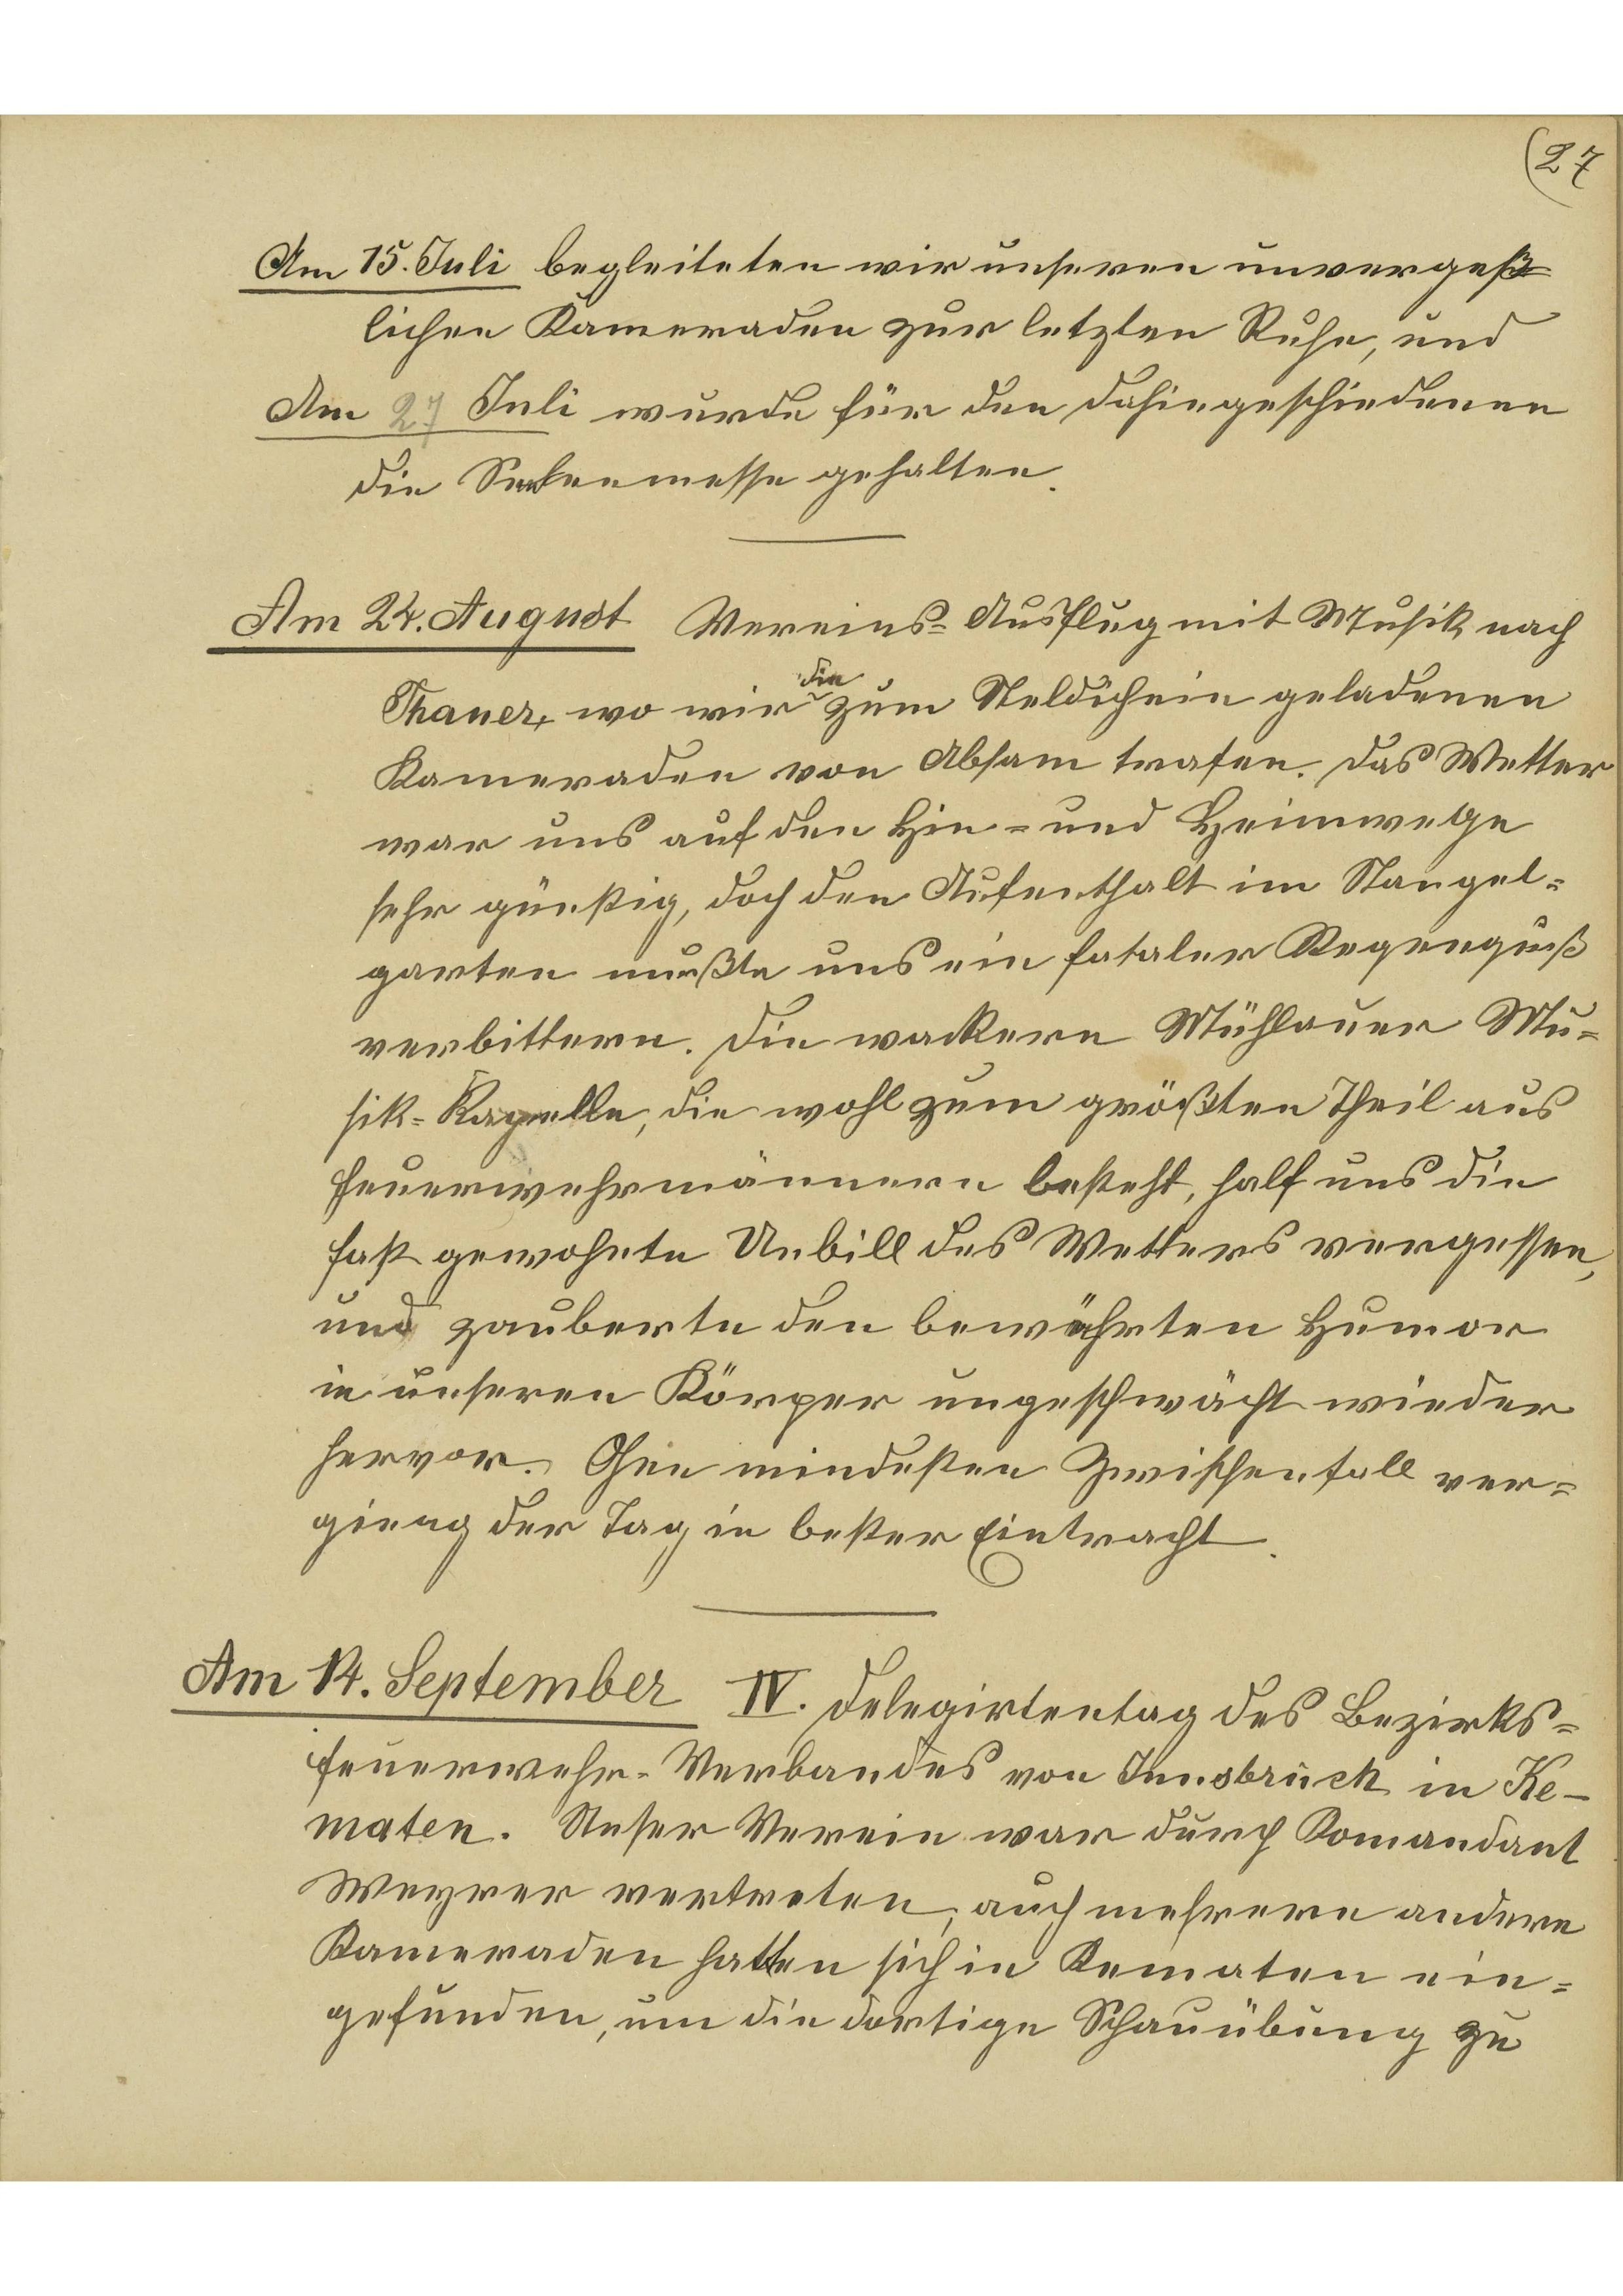 (27
Am 15. Juli begleiteten wir unseren unvergeß=
lichen Kameraden zur letzten Ruhe, und
Am 27 Juli wurde für den dahingeschiedenen
die Seelenmesse gehalten.
Am 24. August Vereins=Ausflug mit Musik nach
die
Thauer, wo wir zum Steldichein geladenen
Kameraden von Absam trafen. Das Wetter
war uns auf den Hin= und Heimwege
sehr günstig, doch den Aufenthalt im Stangel=
garten mußte uns ein fataler Regenguß
verbittern. Die wackere Mühlauer Mu=
sik=Kapelle, die wohl zum größten Theil aus
Feuerwehrmännern besteht, half uns die
fast gewohnte Unbill des Wetters vergessen,
und zauberte den bewährten Humor
in unseren Körper ungeschwächt wieder
hervor. Ohne mindesten Zwischenfall ver=
gieng der Tag in bester Eintracht.
Am 14. September IV. Delegirtentag des Bezirks=
feuerwehr=Verbandes von Innsbruck in Ke-
maten. Unser Verein war durch Komandant
Weyrer vertreten, auch mehrere andere
Kameraden hatten sich in Kematen ein=
gefunden, um die dortige Schauübung zu